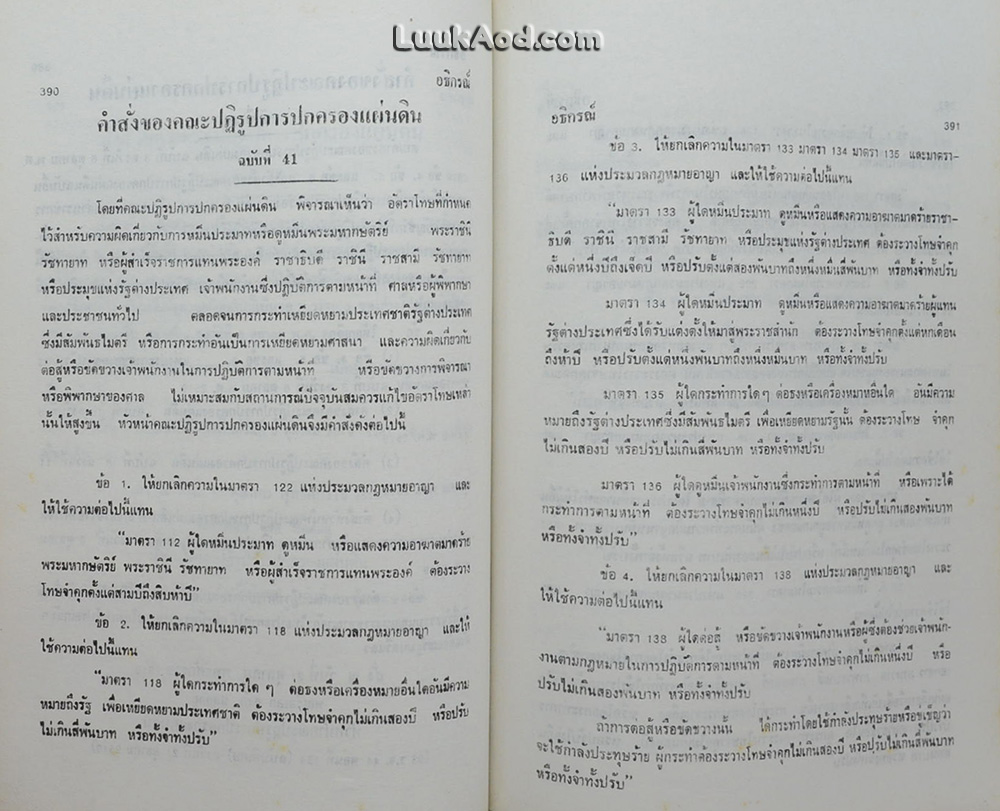 LuukAod.com
390
อธิกรณ์
คำสั่งของคณะปฏิรูปการปกครองแผ่นดิน
ฉบับที่ 41
โดยที่คณะปฏิรูปการปกครองแผ่นดิน พิจารณาเห็นว่า อัตราโทษที่กำหนด
ไว้สำหรับความผิดเกี่ยวกับการหมิ่นประมาทหรือดูหมิ่นพระมหากษัตริย์ พระราชินี
รัชทายาท หรือผู้สำเร็จราชการแทนพระองค์ ราชาธิบดี ราชินี ราชสามี รัชทายาท
หรือประมุขแห่งรัฐต่างประเทศ เจ้าพนักงานซึ่งปฏิบัติการตามหน้าที่ ศาลหรือผู้พิพากษา
และประชาชนทั่วไป ตลอดจนการกระทำเหยียดหยามประเทศชาติรัฐต่างประเทศ
ซึ่งมีสัมพันธไมตรี หรือการกระทำอันเป็นการเหยียดหยามศาสนา และความผิดเกี่ยวกับ
ต่อสู้หรือขัดขวางเจ้าพนักงานในการปฏิบัติการตามหน้าที่ หรือขัดขวางการพิจารณา
หรือพิพากษาของศาล ไม่เหมาะสมกับสถานการณ์ปัจจุบันสมควรแก้ไขอัตราโทษเหล่า
นั้นให้สูงขึ้น หัวหน้าคณะปฏิรูปการปกครองแผ่นดินจึงมีคำสั่งดังต่อไปนี้
ข้อ 1. ให้ยกเลิกความในมาตรา 122 แห่งประมวลกฎหมายอาญา และ
ให้ใช้ความต่อไปนี้แทน
“มาตรา 112 ผู้ใดหมิ่นประมาท ดูหมิ่น หรือแสดงความอาฆาตมาดร้าย
พระมหากษัตริย์ พระราชินี รัชทายาท หรือผู้สำเร็จราชการแทนพระองค์ ต้องระวาง
โทษจำคุกตั้งแต่สามปีถึงสิบห้าปี”
ข้อ 2. ให้ยกเลิกความในมาตรา 118 แห่งประมวลกฎหมายอาญา และให้
ใช้ความต่อไปนี้แทน
“มาตรา 118 ผู้ใดกระทำการใด ๆ ต่อธงหรือเครื่องหมายอื่นใดอันมีความ
หมายถึงรัฐ เพื่อเหยียดหยามประเทศชาติ ต้องระวางโทษจำคุกไม่เกินสองปี หรือปรับ
ไม่เกินสี่พันบาท หรือทั้งจำทั้งปรับ”
อธิกรณ์
391
ข้อ 3. ให้ยกเลิกความในมาตรา 133 มาตรา 134 มาตรา 135 และมาตรา-
136 แห่งประมวลกฎหมายอาญา และให้ใช้ความต่อไปนี้แทน
“มาตรา 133 ผู้ใดหมิ่นประมาท ดูหมิ่นหรือแสดงความอาฆาตมาดร้ายราชา-
ธิบดี ราชินี ราชสามี รัชทายาท หรือประมุขแห่งรัฐต่างประเทศ ต้องระวางโทษจำคุก
ตั้งแต่หนึ่งปีถึงเจ็ดปี หรือปรับตั้งแต่สองพันบาทถึงหนึ่งหมื่นสี่พันบาท หรือทั้งจำทั้งปรับ
มาตรา 134 ผู้ใดหมิ่นประมาท ดูหมิ่นหรือแสดงความอาฆาตมาดร้ายผู้แทน
รัฐต่างประเทศซึ่งได้รับแต่งตั้งให้มาสู่พระราชสำนัก ต้องระวางโทษจำคุกตั้งแต่หกเดือน
ถึงห้าปี หรือปรับตั้งแต่หนึ่งพันบาทถึงหนึ่งหมื่นบาท หรือทั้งจำทั้งปรับ
มาตรา 135 ผู้ใดกระทำการใด ๆ ต่อธงหรือเครื่องหมายอื่นใด อันมีความ
หมายถึงรัฐต่างประเทศซึ่งมีสัมพันธไมตรี เพื่อเหยียดหยามรัฐนั้น ต้องระวางโทษ จำคุก
ไม่เกินสองปี หรือปรับไม่เกินสี่พันบาท หรือทั้งจำทั้งปรับ
มาตรา 136 ผู้ใดดูหมิ่นเจ้าพนักงานซึ่งกระทำการตามหน้าที่ หรือเพราะได้
กระทำการตามหน้าที่ ต้องระวางโทษจำคุกไม่เกินหนึ่งปี หรือปรับไม่เกินสองพันบาท
หรือทั้งจำทั้งปรับ”
ข้อ 4. ให้ยกเลิกความในมาตรา 138 แห่งประมวลกฎหมายอาญา และ
ให้ใช้ความต่อไปนี้แทน
“มาตรา 138 ผู้ใดต่อสู้ หรือขัดขวางเจ้าพนักงานหรือผู้ซึ่งต้องช่วยเจ้าพนัก-
งานตามกฎหมายในการปฏิบัติการตามหน้าที่ ต้องระวางโทษจำคุกไม่เกินหนึ่งปี หรือ
ปรับไม่เกินสองพันบาท หรือทั้งจำทั้งปรับ
ถ้าการต่อสู้หรือขัดขวางนั้น ได้กระทำโดยใช้กำลังประทุษร้ายหรือขู่เข็ญว่า
จะใช้กำลังประทุษร้าย ผู้กระทำต้องระวางโทษจำคุกไม่เกินสองปี หรือปรับไม่เกินสี่พันบาท
หรือทั้งจำทั้งปรับ”